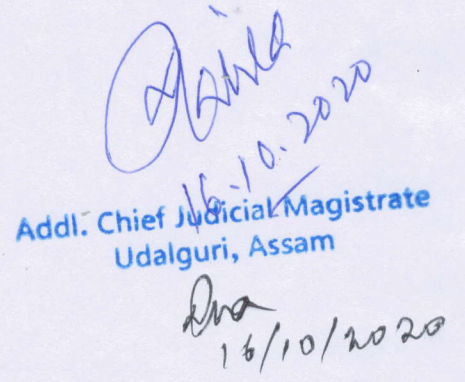 16.10.2020
Addl. Chief Judicial Magistrate
Udalguri, Assam
16/10/2020